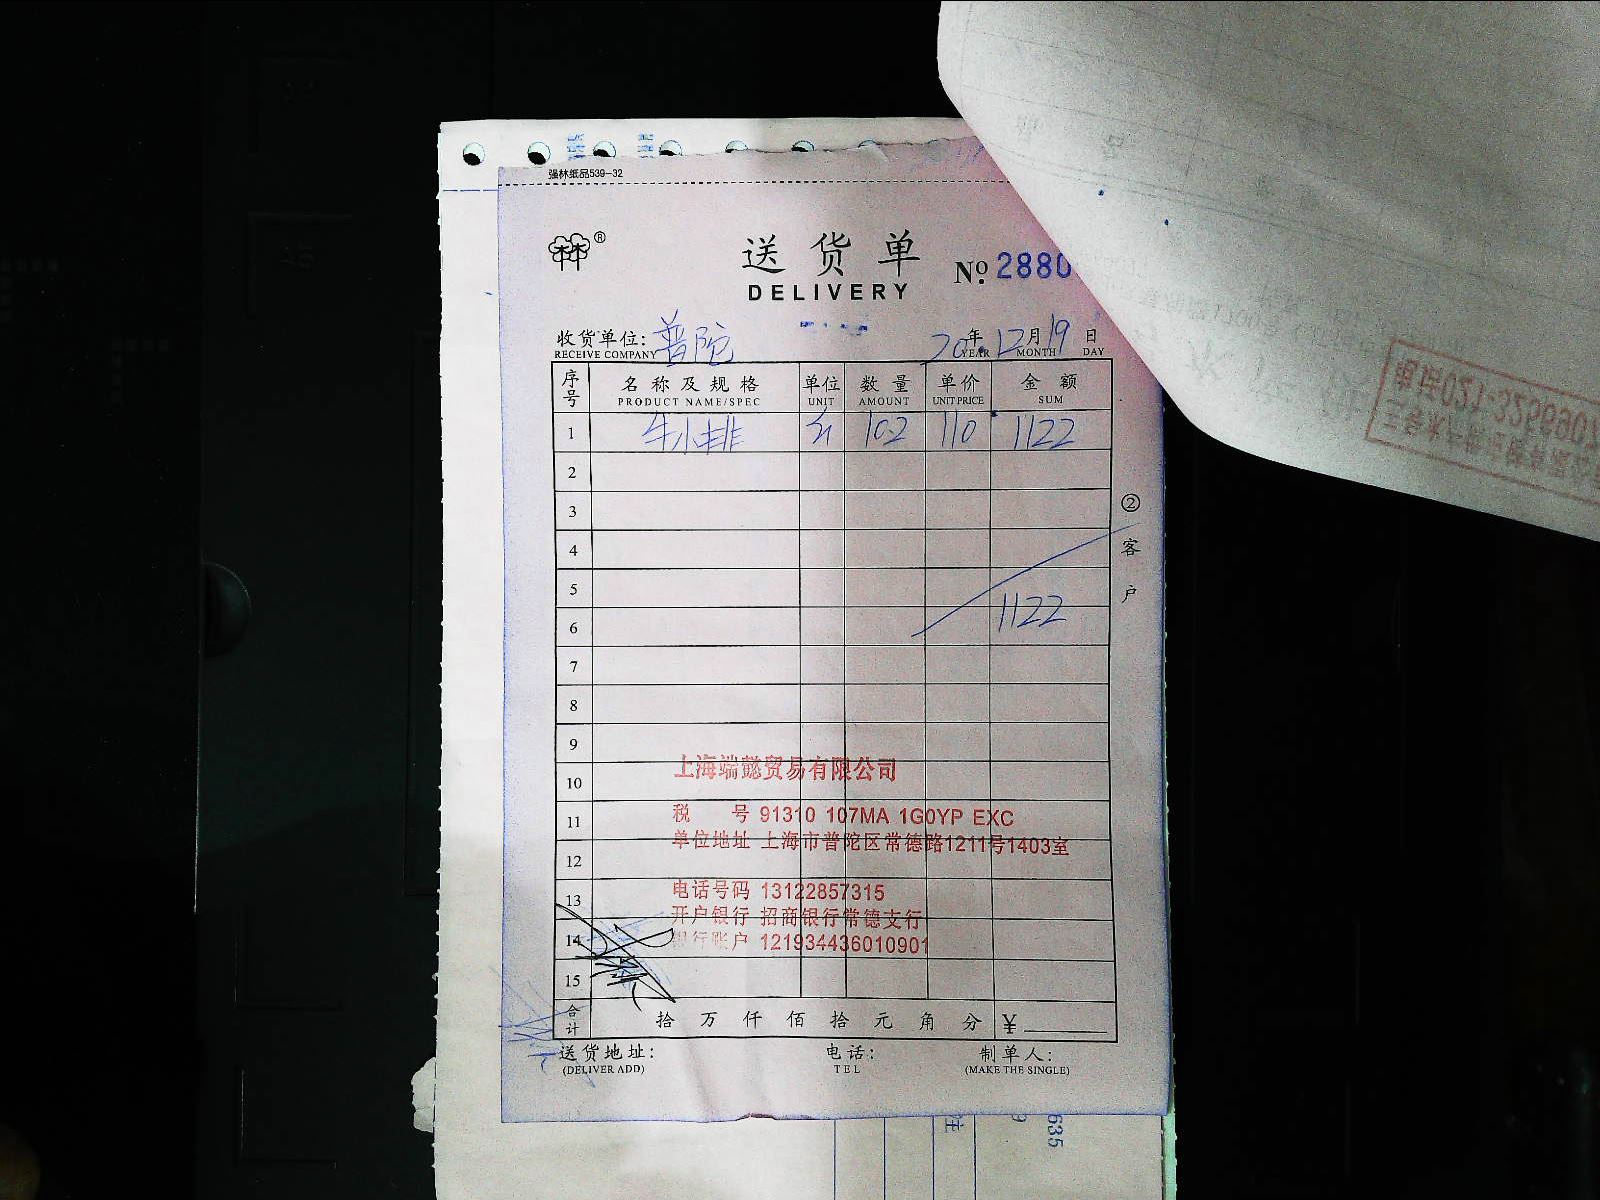 强林纸品539-32
®
送货单
№ 2880
DELIVERY
收货单位: 普陀 20年12月19日
RECEIVE COMPANY YEAR MONTH DAY
序号 名称及规格 单位 数量 单价 金额
PRODUCT NAME/SPEC UNIT AMOUNT UNIT PRICE SUM
1 牛小排 斤 10.2 110 1122
2
3
②客户
4
5
6 1122
7
8
9
10 上海端懿贸易有限公司
11 税 号 91310 107MA 1G0YP EXC
单位地址 上海市普陀区常德路1211号1403室
12
13 电话号码 13122857315
开户银行 招商银行常德支行
14 银行账户 121934436010901
15
合计 拾 万 仟 佰 拾 元 角 分 ¥
送货地址: 电话: 制单人:
(DELIVER ADD) TEL (MAKE THE SINGLE)
635
注